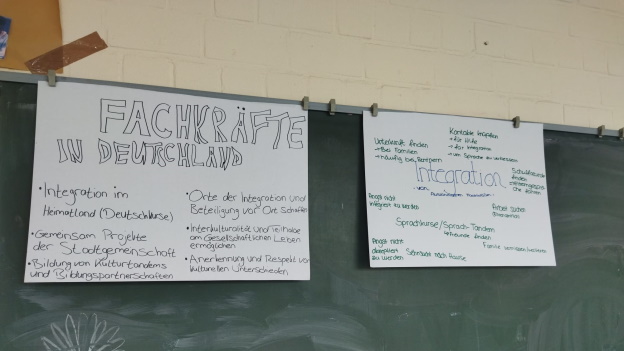 FACHKRÄFTE
IN DEUTSCHLAND
• Integration im
Heimatland (Deutschkurse)
• Gemeinsam Projekte
der Stadtgemeinschaft
• Bildung von Kulturtandems
und Bildungspartnerschaften
• Orte der Integration und
Beteiligung vor Ort schaffen
• Interkulturalität und Teilhabe
am Gesellschaftlichen Leben
ermöglichen
• Anerkennung und Respekt vor
kulturellen Unterschieden
Kontakte knüpfen
→ für Hilfe
→ für Integration
→ um Sprache zu verbessern
Unterkunft finden
→ Bei Familien
→ häufig bei
Integration
Angst nicht
integriert zu werden
finden
Arbeit suchen
Sprachkurse/Sprach-Tandem
→ Freunde finden
Angst nicht
akzeptiert
zu werden
Sehnsucht nach Hause
Familie vermissen